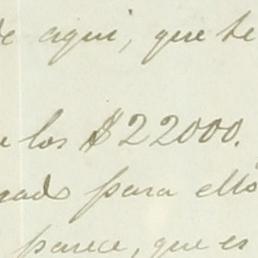 de aqui, que te
los $22000.
para ello
parece, que es